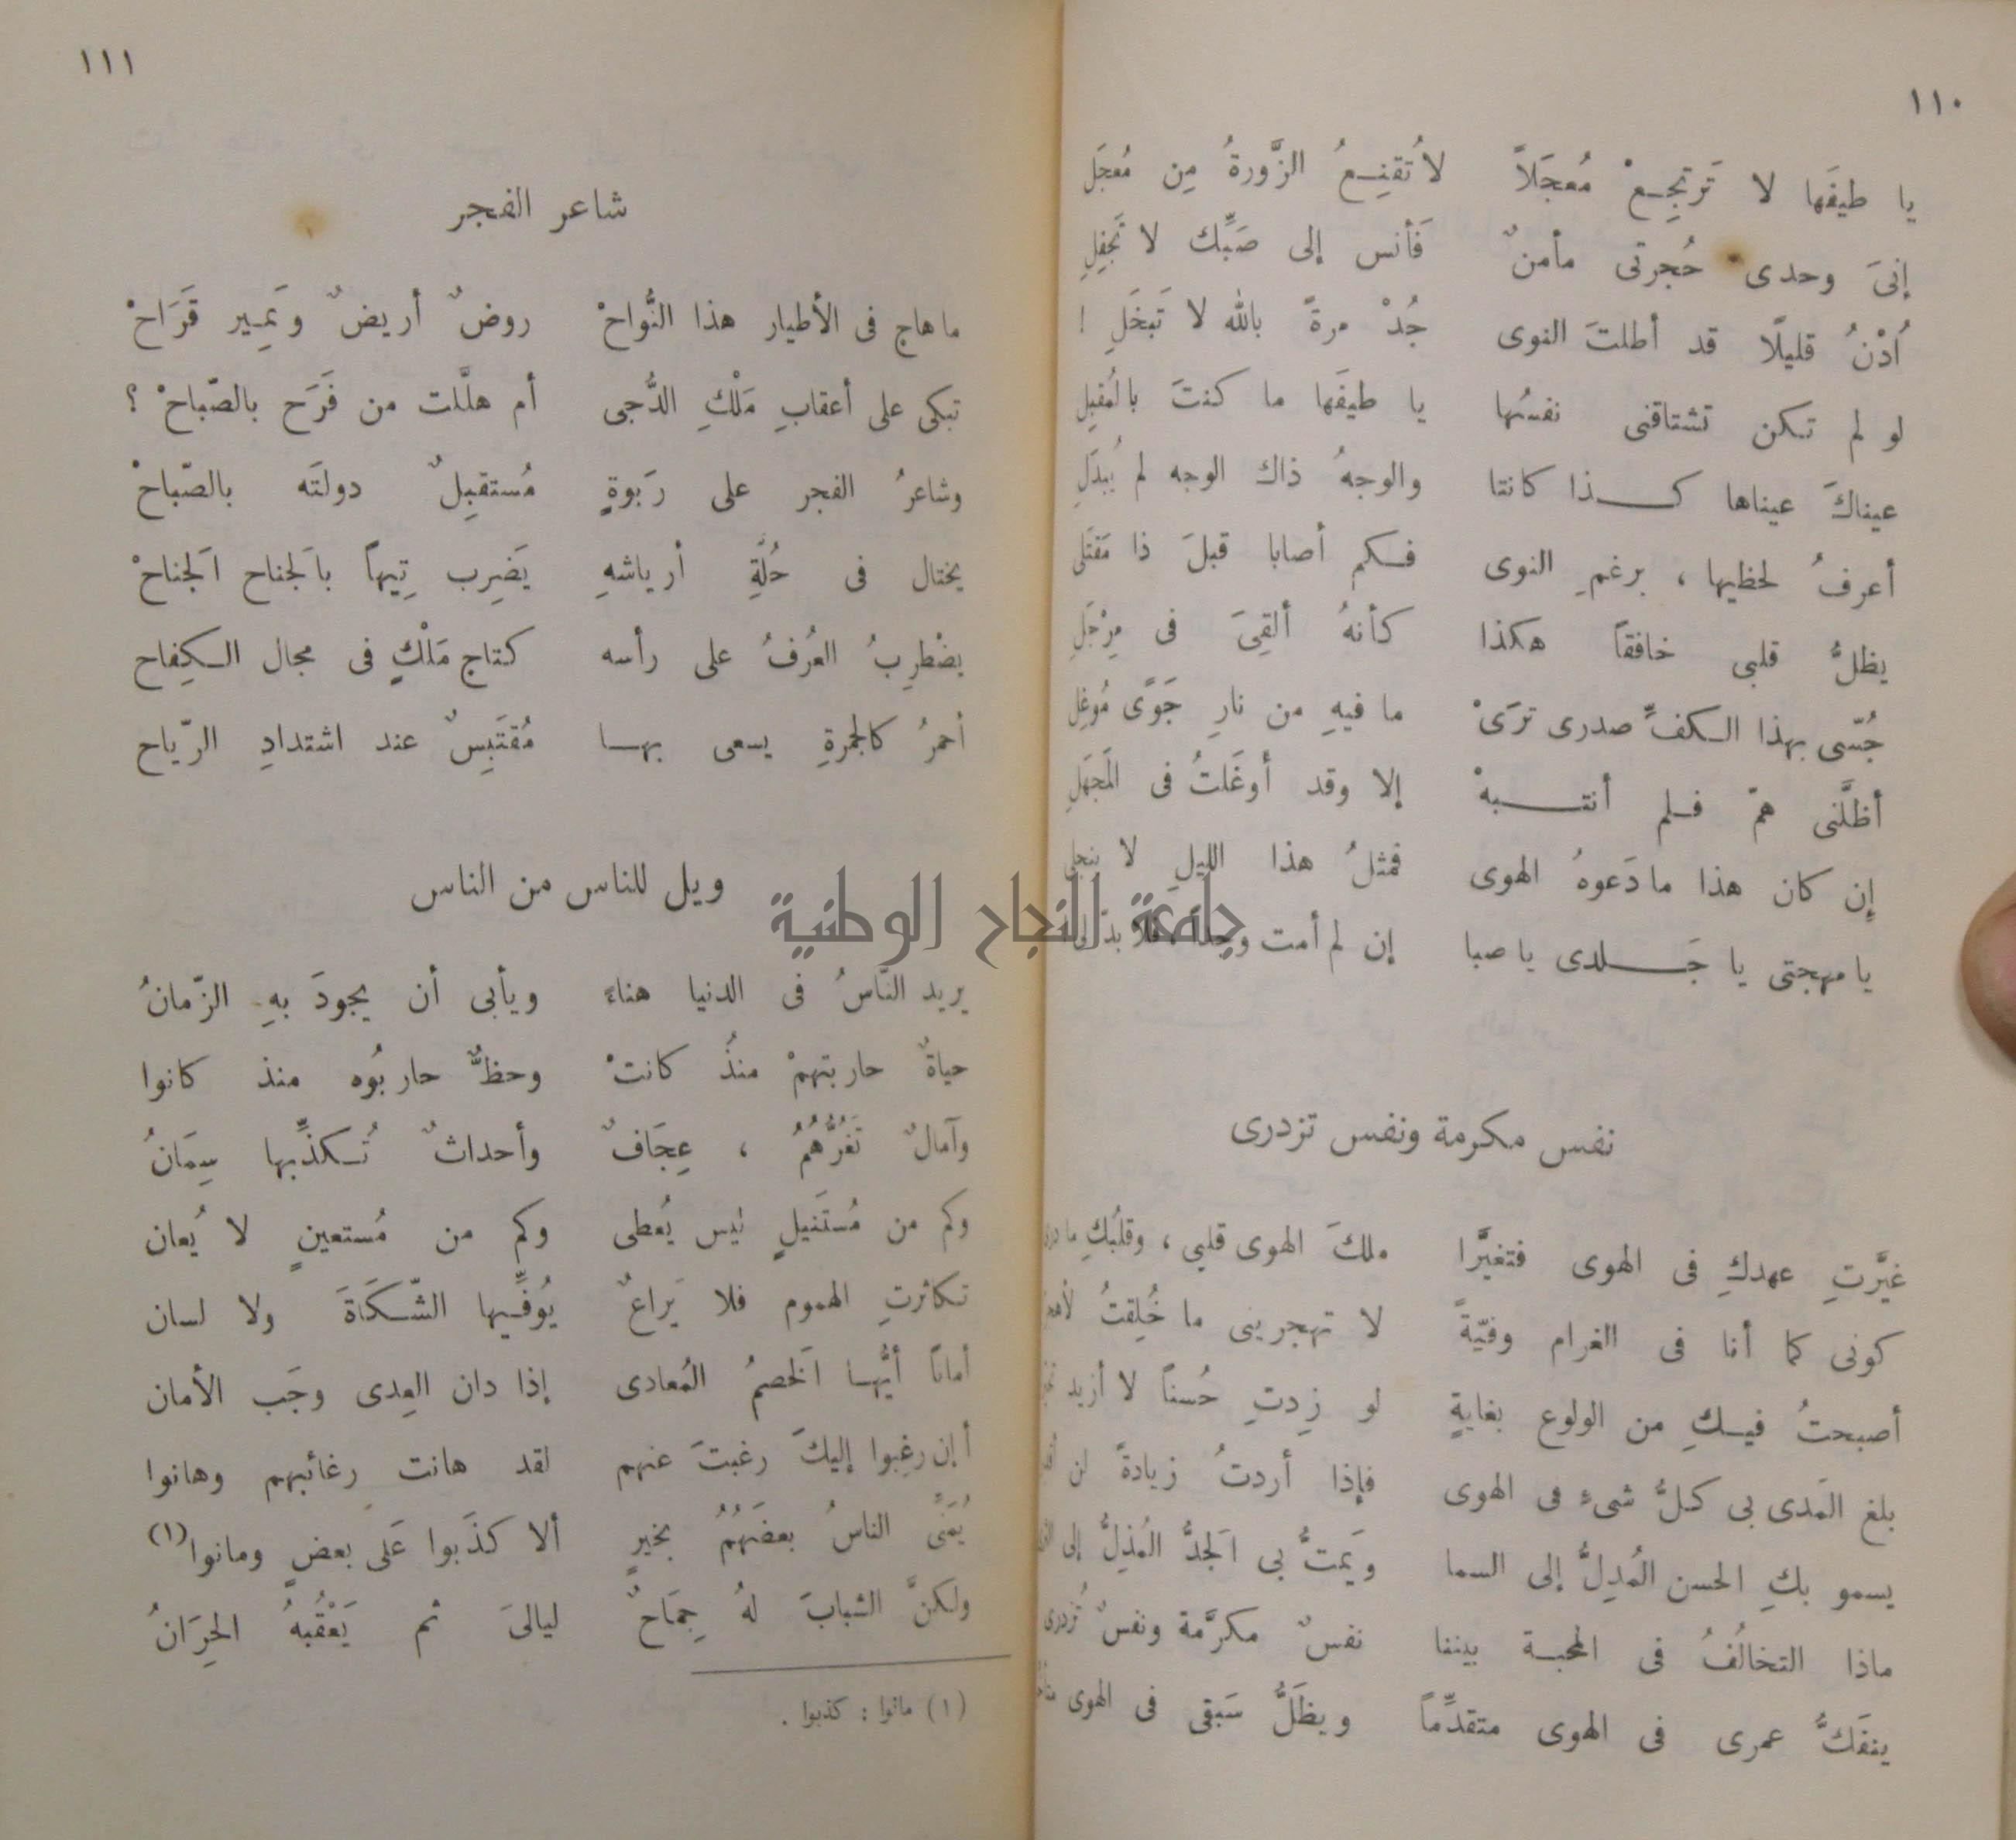 ١١٠
يا طيفَها لا تَرتجِعْ مُعجَلاً لا تُقنِعُ الزَّورةُ مِن مُعجَلِ
إنىَ وحدى حُجرتى مأمنٌ فَأنس إلى صَبِّك لا تَجفِلِ
اُدْنُ قليلًا قد أطلتَ النوى جُدْ مرةً بالله لا تَبخَلِ !
لو لم تكن تشتاقنى نفسُها يا طيفَها ما كنتَ بالمُقبِلِ
عيناكَ عيناها كذا كانتا والوجهُ ذاك الوجه لم يُبدَلِ
أعرفُ لحظيها ، برغمِ النوى فكم أصابا قبلَ ذا مَقتَلى
يظلُّ قلبى خافقاً هكذا كأنهُ ألقِىَ فى مِرْجَلِ
جُسّى بهذا الكفِّ صدرى ترَىْ ما فيهِ من نارِ جَوًى مُوغِل
أظلَّنى همّ فلم أنتبهْ إلا وقد أوغَلتُ فى المَجهَلِ
إن كان هذا ما دَعوهُ الهوى فمثلُ هذا الليلِ لا ينجلى
يا مهجتى يا جَلدى يا صبا إن لم أمت وجداً فلا بدّ لى
نفس مكرمة ونفس تزدرى
غيَّرتِ عهدكِ فى الهوى فتغيَّرا ملكَ الهوى قلبى ، وقلبُكِ ما درى
كونى كما أنا فى الغرام وفيّةً لا تهجرينى ما خُلِقتُ لأهجرا
أصبحتُ فيكِ من الولوع بغايةٍ لو زِدتِ حُسناً لا أزيد
بلغ المَدى بى كلُّ شىءٍ فى الهوى فإذا أردتُ زيادةً لن
يسمو بكِ الحسن المُدِلُّ إلى السما ويَمتُّ بى الَجدُّ المُذِلُّ إلى
ماذا التخالُفُ فى المحبة بيننا نفسٌ مكرَّمة ونفسٌ تُزدرى
ينفَكُّ عمرى فى الهوى متقدِّماً ويظَلُّ سَبقى فى الهوى
١١١
شاعر الفجر
ما هاج فى الأطيار هذا النُّواحْ روضٌ أريضٌ ونَمِير قَرَاحْ
تبكى على أعقابِ مَلْكِ الدُّجى أم هلّلت من فَرَح بالصّباحْ ؟
وشاعرُ الفجر على رَبوةٍ مُستقبِلٌ دولتَه بالصّباحْ
يختال فى حُلَّةِ أرياشهِ يَضَرِب تِيهاً باَلجناح اَلجناحْ
يضْطرِبُ العُرفُ على رأسه كتاج مَلْكٍ فى مجال الكِفاح
أحمرُ كالجمرةِ يسعى بها مُقتَبِسٌ عند اشتدادِ الرّياح
ويل للناس من الناس
يريد النّاسُ فى الدنيا هناءً ويأبى أن يجودَ بهِ الزّمانُ
حياةٌ حاربتهمْ منذُ كانتْ وحظٌّ حاربُوه منذ كانوا
وآمالٌ تَغُرُّهُمُ ، عِجَافٌ وأحداثٌ تُكذِّبها سِمَانُ
وكم من مُستَنيلٍ ليس يُعطى وكم من مُستعينٍ لا يُعان
تكاثرتِ الهموم فلا يَراعٌ يُوفِّيها الشّكَاةَ ولا لسان
أمانًا أيُّها اَلخصمُ المُعادى إذا دان العِدى وجَب الأمان
أإن رغِبوا إليكَ رغبتَ عنهم لقد هانت رغائبهم وهانوا
يُمَنِّى الناسُ بعضَهُمُ بخيرٍ ألا كذَبوا عَلى بعضٍ ومانوا(١)
ولكنَّ الشبابَ لهُ جِمَاحٌ ليالىَ ثم يَعْقُبهُ الحِرَانُ
(١) مانوا : كذبوا .
جامعة النجاح الوطنية